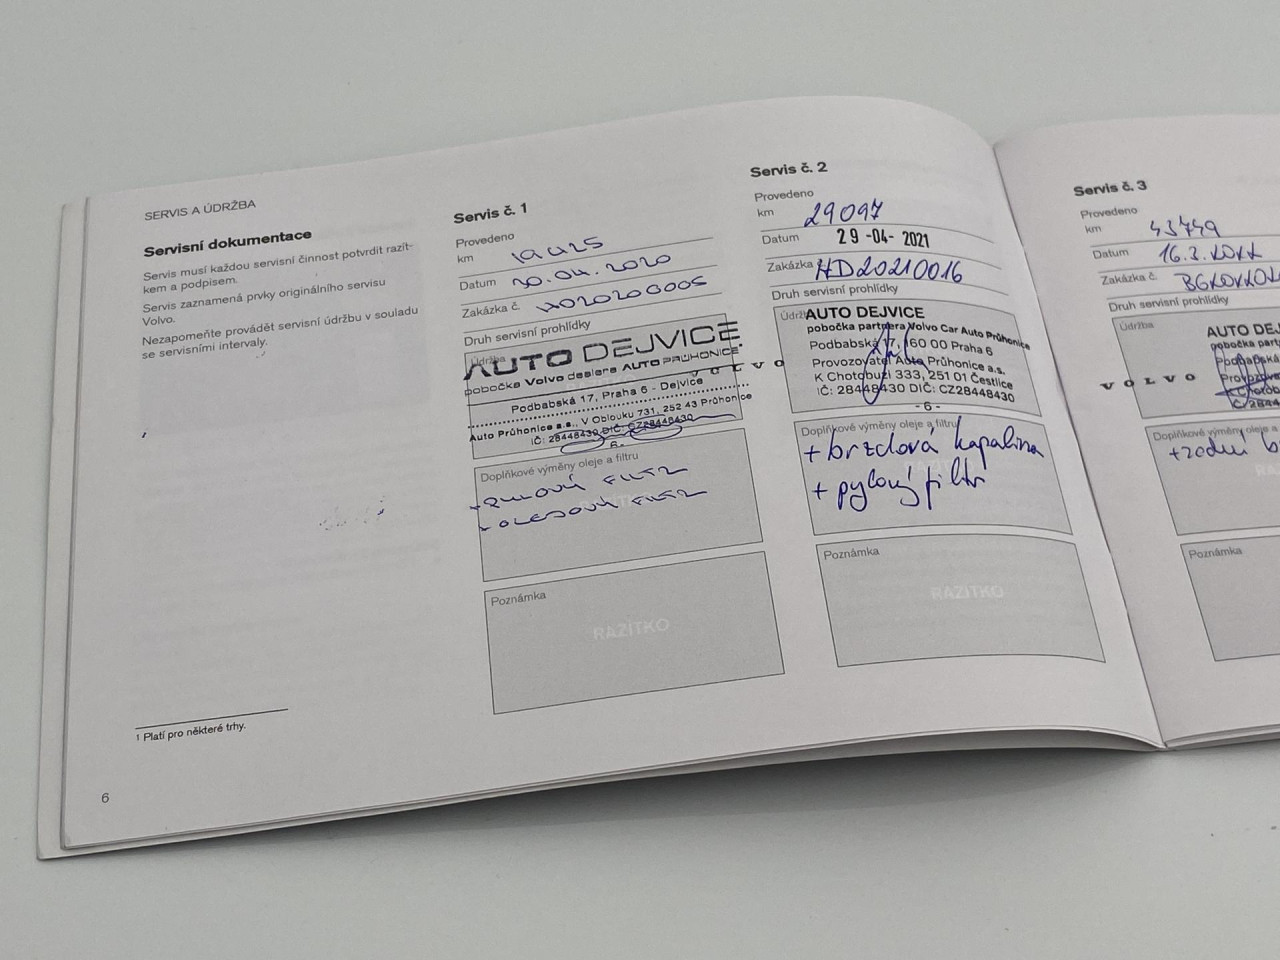 SERVIS A ÚDRŽBA
Servisní dokumentace
Servis musí každou servisní činnost potvrdit razít-
kem a podpisem.
Servis zaznamená prvky originálního servisu
Volvo.
Nezapomeňte provádět servisní údržbu v souladu
se servisními intervaly.
1 Platí pro některé trhy.
6
Servis č. 1
Provedeno
km
Datum 20.04.2020
Zakázka č.
Druh servisní prohlídky
Údržba
AUTO DEJVICE
pobočka Volvo dealera AUTO PRŮHONICE
Podbabská 17, Praha 6 - Dejvice
Auto Průhonice a.s., V Oblouku 731, 252 43 Průhonice
IČ: 28448430 DIČ: CZ28448430
Doplňkové výměny oleje a filtru
+ PYLOVÝ FILTR
+ OLEJOVÝ FILTR
Poznámka
RAZÍTKO
Servis č. 2
Provedeno
km 29097
Datum 29 -04- 2021
Zakázka HD20210016
Druh servisní prohlídky
AUTO DEJVICE
pobočka partnera Volvo Car Auto Průhonice
Podbabská 17, 160 00 Praha 6
VOLVO
Provozovatel Auto Průhonice a.s.
K Chotobuzi 333, 251 01 Čestlice
IČ: 28448430 DIČ: CZ28448430
- 6 -
Doplňkové výměny oleje a filtru
+ brzdová kapalina
+ pylový filtr
Poznámka
RAZÍTKO
Servis č. 3
Provedeno
km 43749
Datum 16.3.2022
Zakázka č.
Druh servisní prohlídky
Údržba
AUTO
VOLVO
Doplňkové výměny oleje a filtru
+zadní
Poznámka